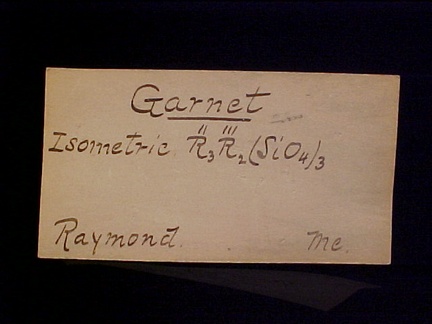 Garnet
Isometric R̎₃R‴₂(SiO₄)₃
Raymond. Me.